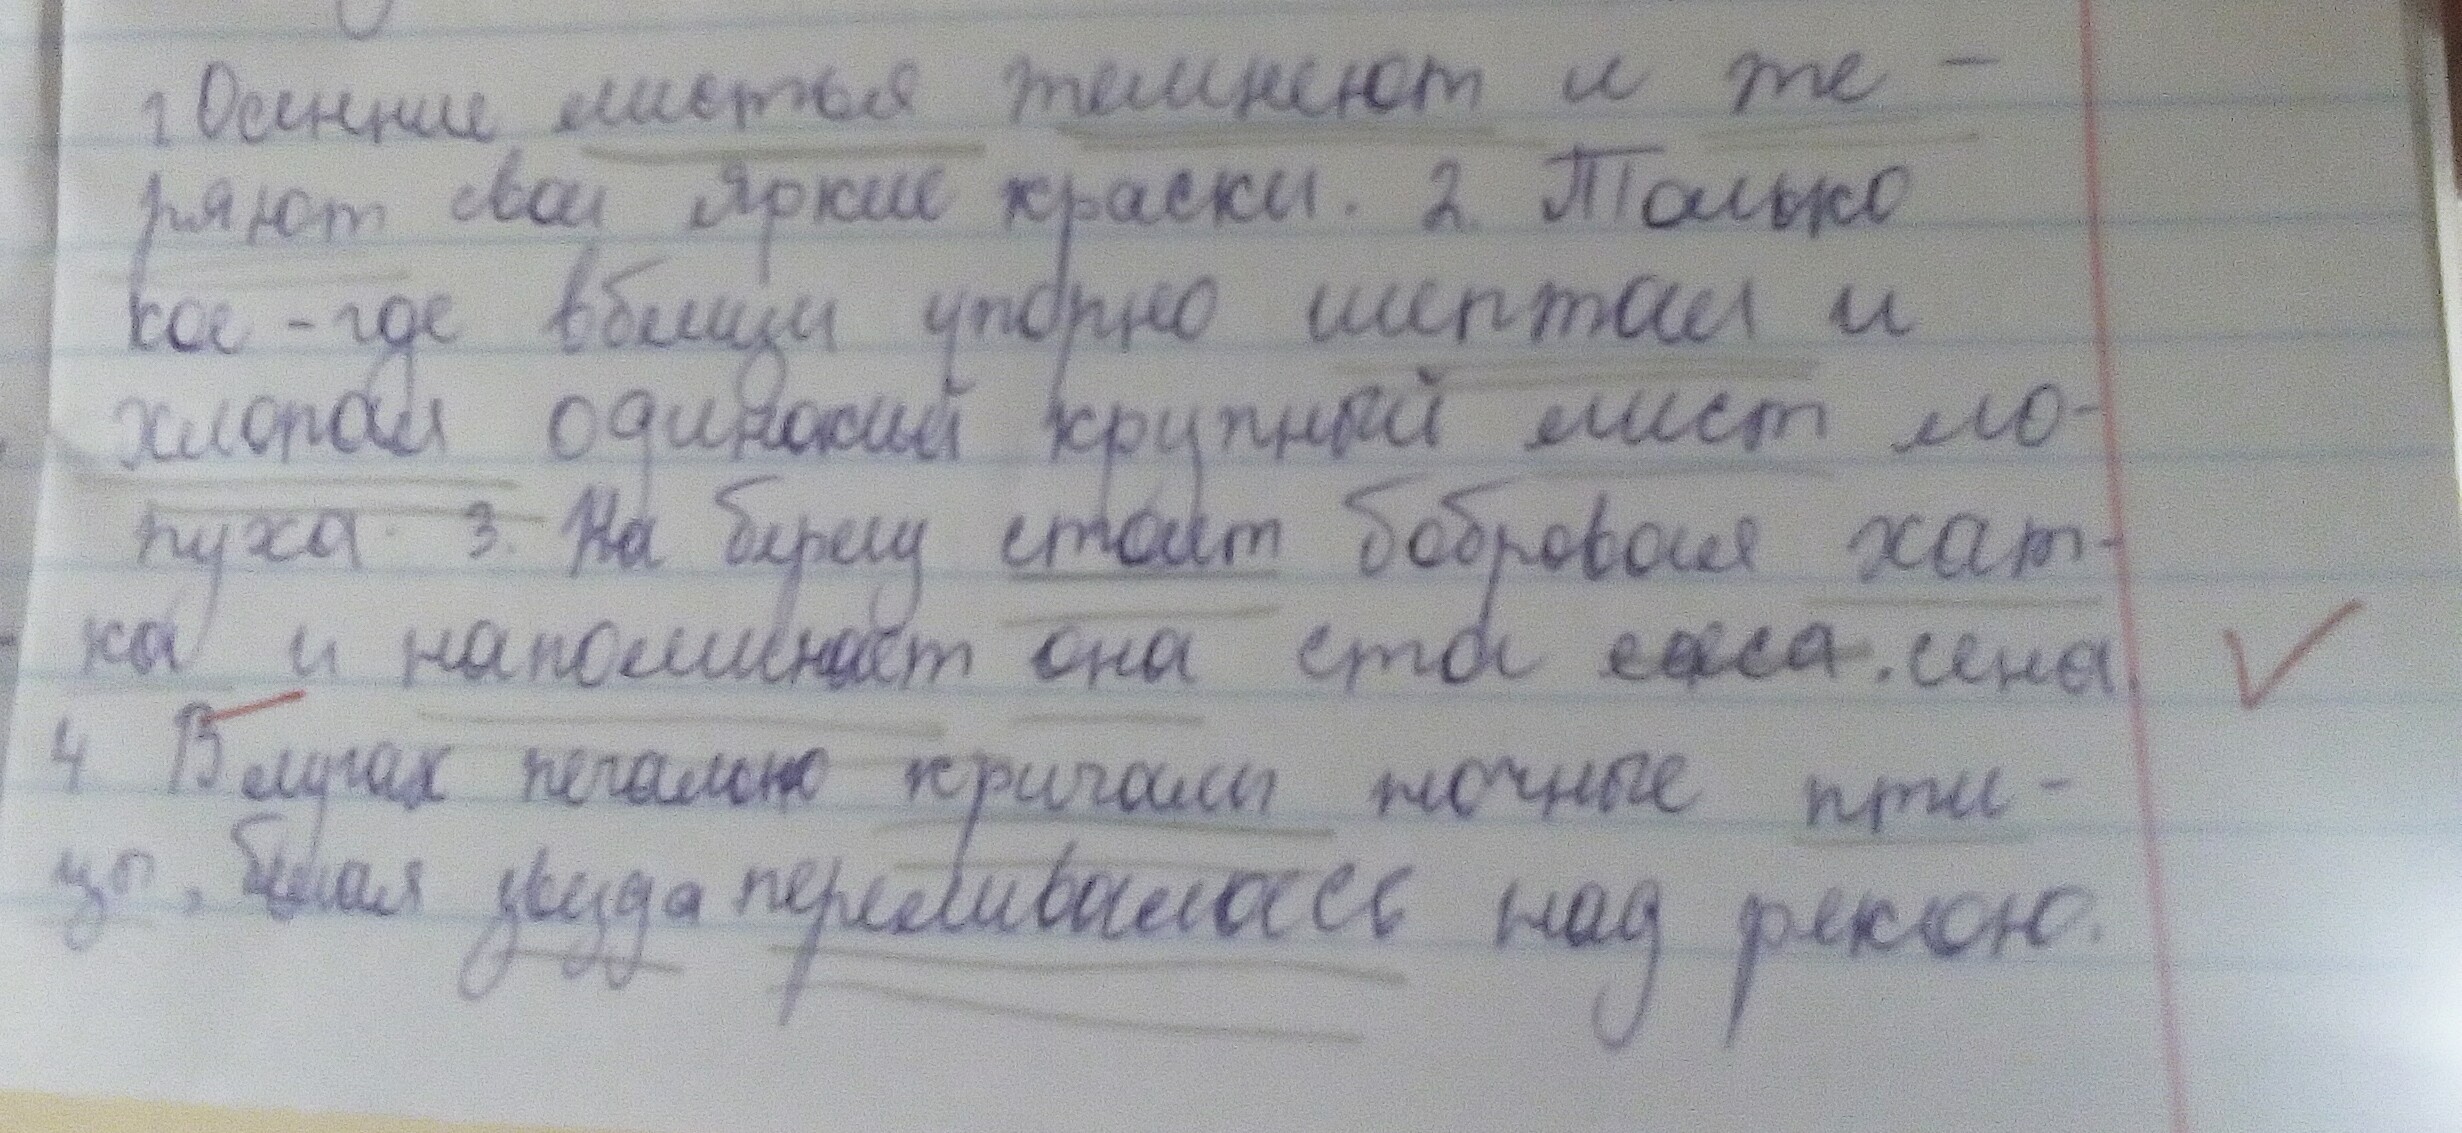 1 Осенние листья темнеют и те-
ряют свои яркие краски. 2. Только
кое-где вблизи упорно шептал и
хлопал одинокий крупный лист ло-
пуха. 3. На берегу стоит бобровая хат-
ка и напоминает она стог сена.
4 В лугах печально кричали ночные пти-
цы, белая звезда переливалась над рекою.